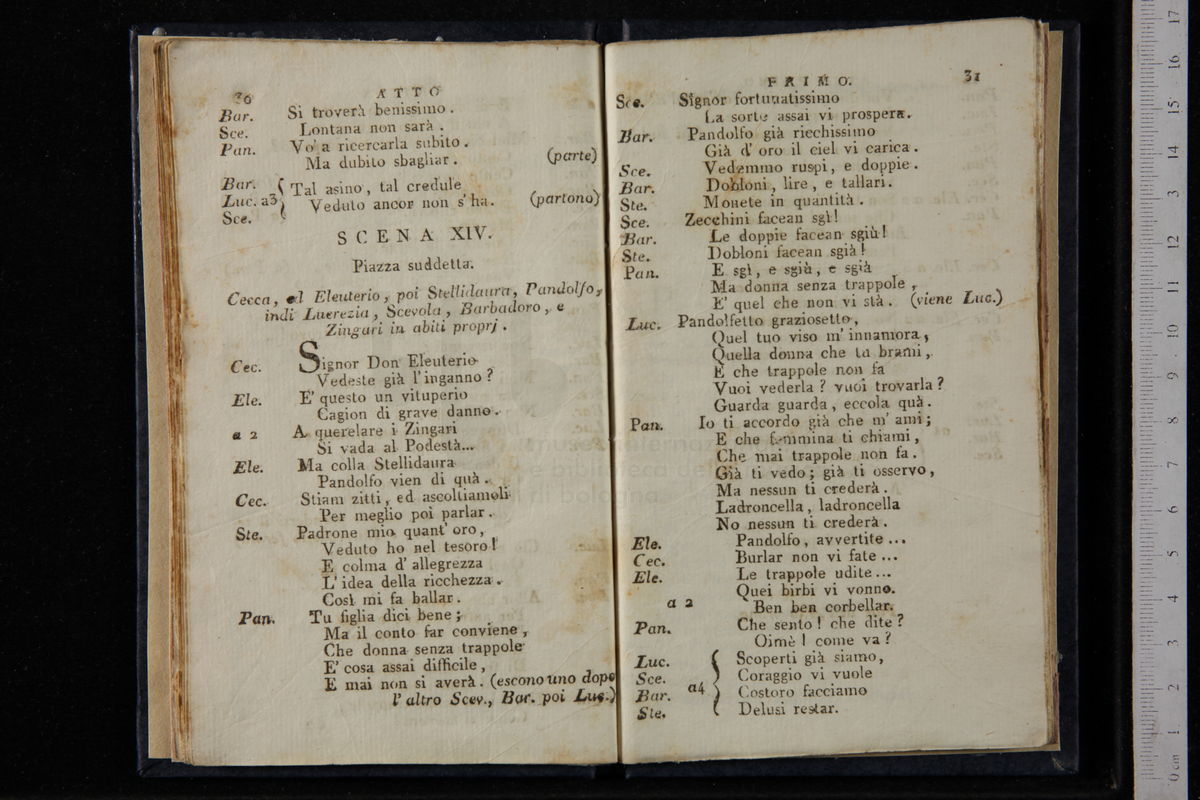 30 ATTO
Bar. Si troverà benissimo.
Sce. Lontana non sarà.
Pan. Vo' a ricercarla subito.
Ma dubito sbagliar. (parte)
Bar. Luc. a3 Sce. { Tal asino, tal credule
Veduto ancor non s'ha. (partono)
SCENA XIV.
Piazza suddetta.
Cecca, ed Eleuterio, poi Stellidaura, Pandolfo,
indi Lucrezia, Scevola, Barbadoro, e
Zingari in abiti proprj.
Cec. Signor Don Eleuterio
Vedeste già l'inganno?
Ele. E' questo un vituperio
Cagion di grave danno.
a 2 A querelare i Zingari
Si vada al Podestà...
Ele. Ma colla Stellidaura
Pandolfo vien di quà.
Cec. Stiam zitti, ed ascoltiamoli
Per meglio poi parlar.
Ste. Padrone mio quant' oro,
Veduto ho nel tesoro!
E colma d' allegrezza
L'idea della ricchezza.
Così mi fa ballar.
Pan. Tu figlia dici bene;
Ma il conto far conviene,
Che donna senza trappole
E' cosa assai difficile,
E mai non si averà. (escono uno dopo
l'altro Scev., Bar. poi Luc.)
PRIMO. 31
Sce. Signor fortunatissimo
La sorte assai vi prospera.
Bar. Pandolfo già ricchissimo
Già d' oro il ciel vi carica.
Sce. Vedemmo ruspi, e doppie.
Bar. Dobloni, lire, e tallari.
Ste. Monete in quantità.
Sce. Zecchini facean sgì!
Bar. Le doppie facean sgiù!
Ste. Dobloni facean sgià!
Pan. E sgì, e sgiù, e sgià
Ma donna senza trappole,
E' quel che non vi stà. (viene Luc.)
Luc. Pandolfetto graziosetto,
Quel tuo viso m' innamora,
Quella donna che tu brami,
E che trappole non fa
Vuoi vederla? vuoi trovarla?
Guarda guarda, eccola quà.
Pan. Io ti accordo già che m' ami;
E che femmina ti chiami,
Che mai trappole non fa.
Già ti vedo; già ti osservo,
Ma nessun ti crederà.
Ladroncella, ladroncella
No nessun ti crederà.
Ele. Pandolfo, avvertite...
Cec. Burlar non vi fate...
Ele. Le trappole udite...
Quei birbi vi vonno.
a 2 Ben ben corbellar.
Pan. Che sento! che dite?
Oimè! come va?
Luc. Scoperti già siamo,
Sce. Coraggio vi vuole
Bar. a4 Costoro facciamo
Ste. Delusi restar.